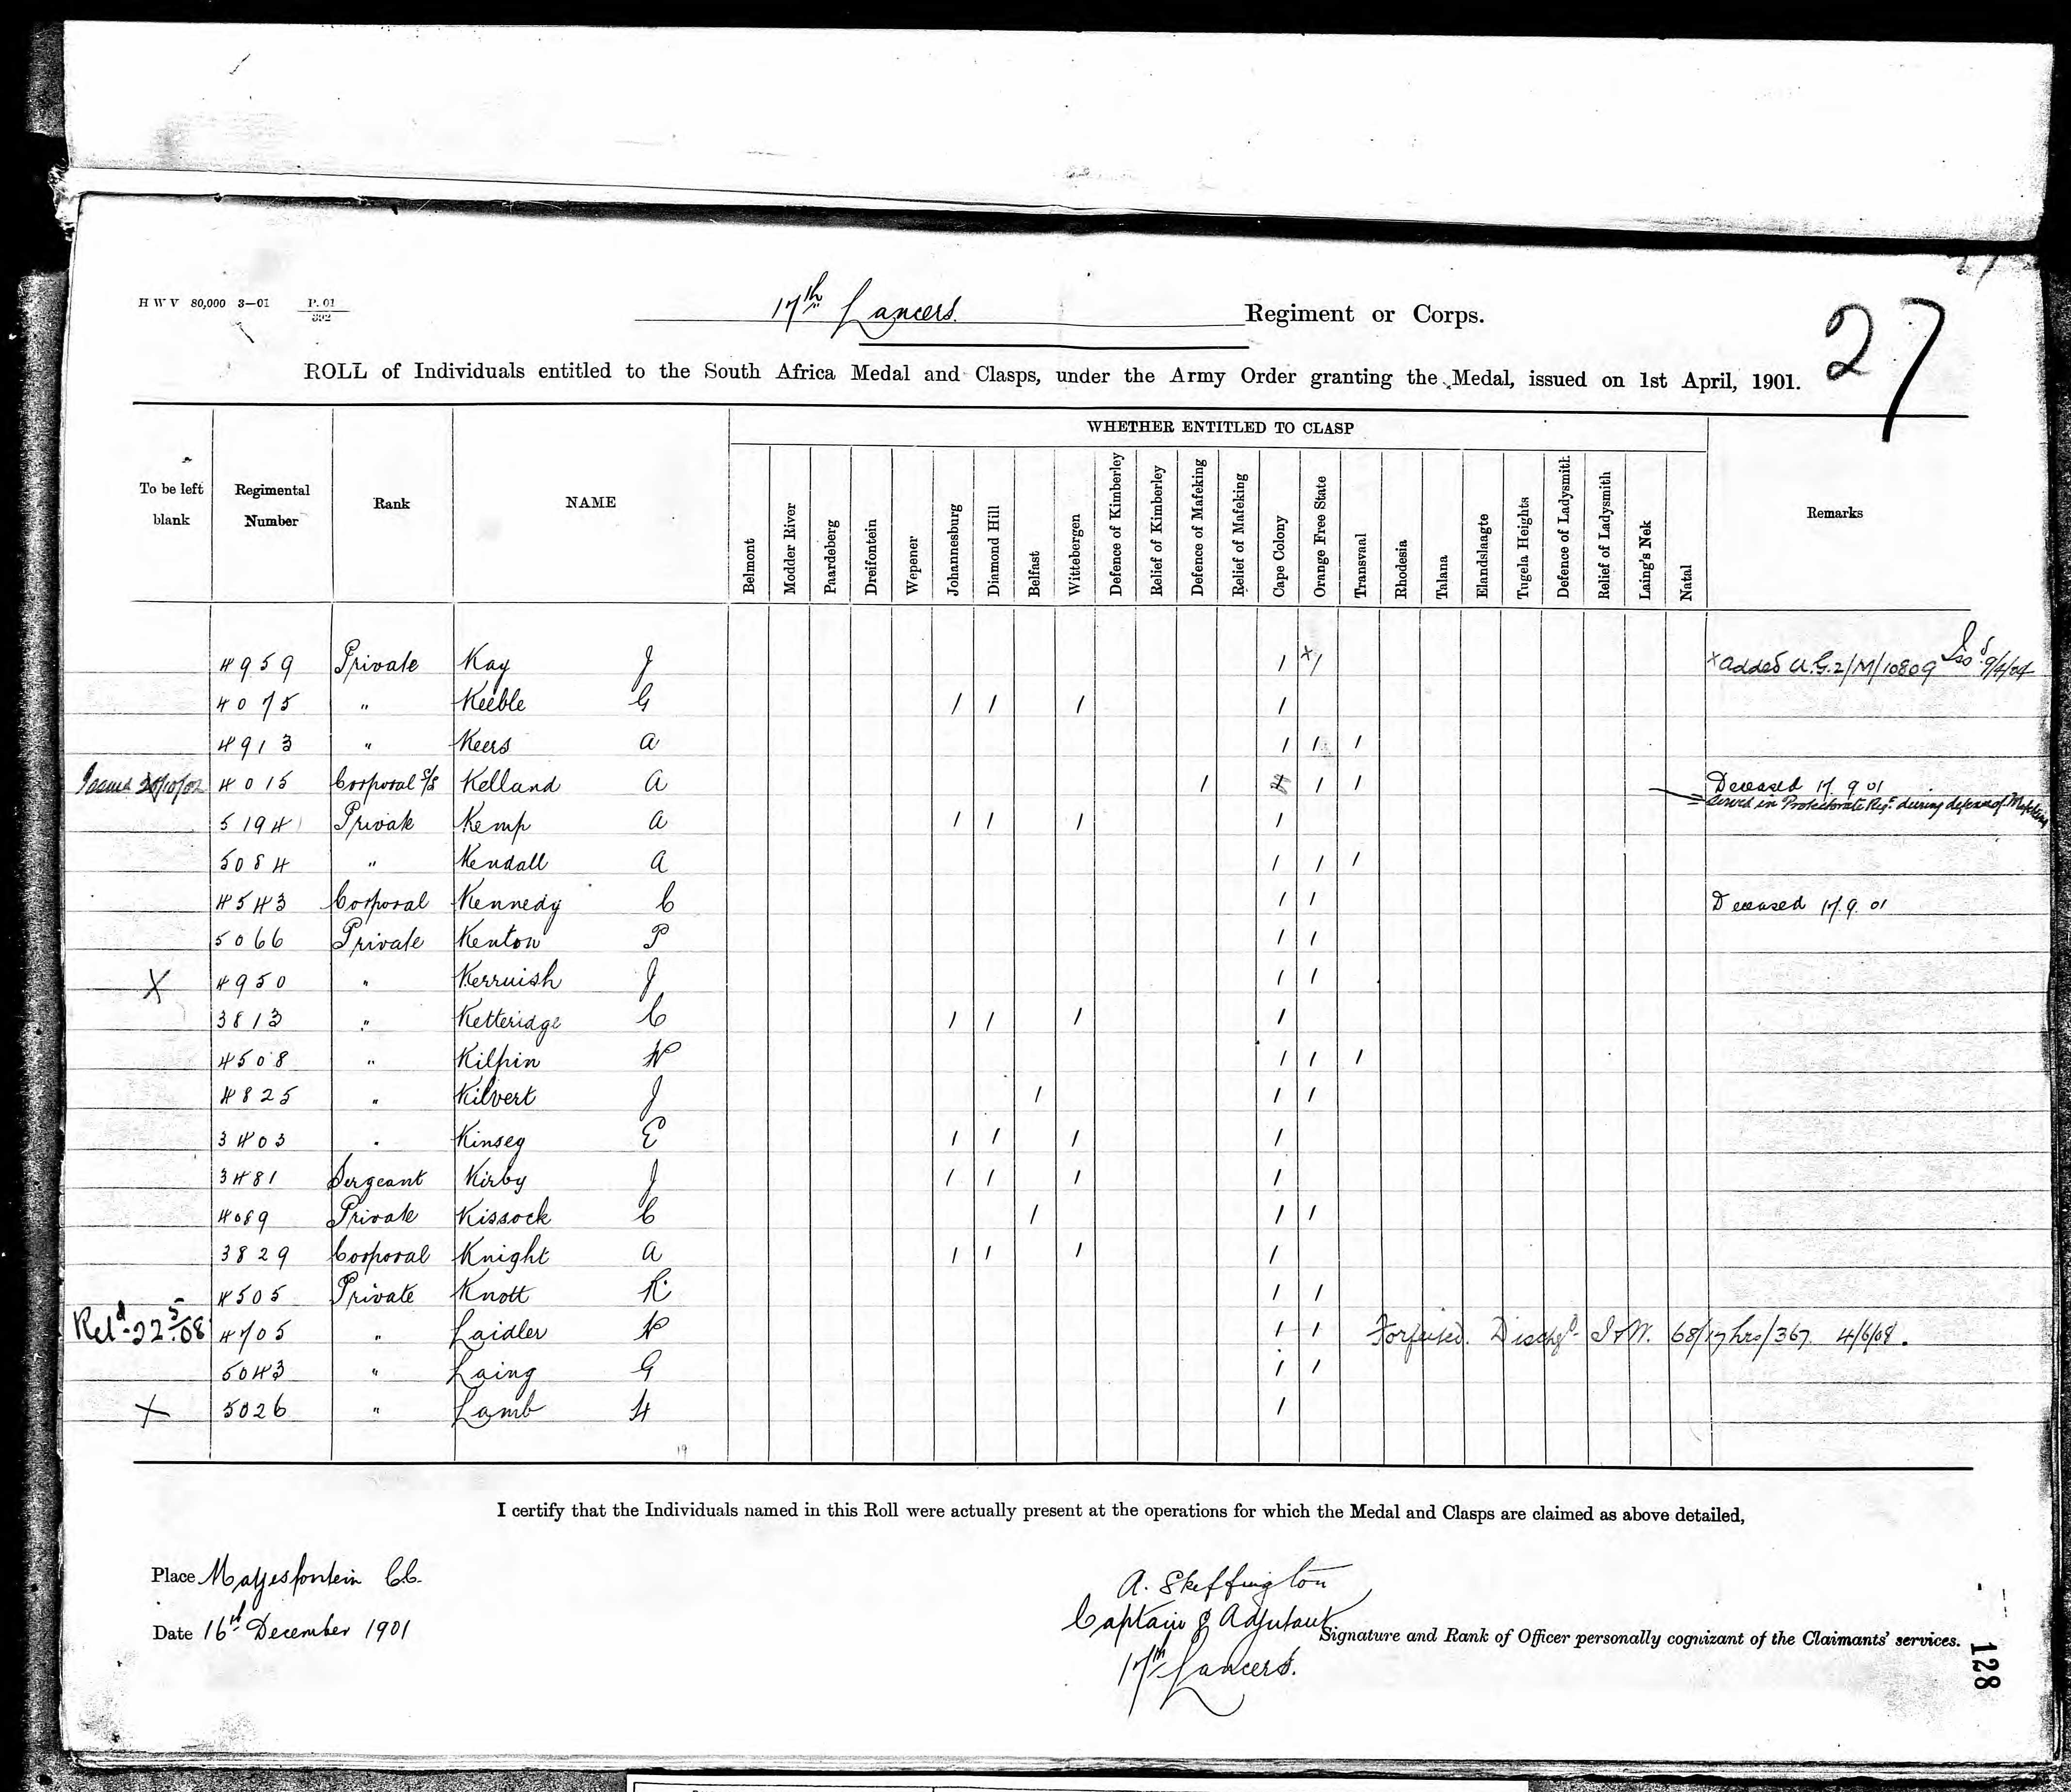 27
H W V 80,000 3—01 P. 01
17th Lancers. Regiment or Corps.
ROLL of Individuals entitled to the South Africa Medal and Clasps, under the Army Order granting the Medal, issued on 1st April, 1901.
WHETHER ENTITLED TO CLASP
To be left blank Regimental Number Rank NAME Belmont Modder River Paardeberg Dreifontein Wepener Johannesburg Diamond Hill Belfast Wittebergen Defence of Kimberley Relief of Kimberley Defence of Mafeking Relief of Mafeking Cape Colony Orange Free State Transvaal Rhodesia Talana Elandslaagte Tugela Heights Defence of Ladysmith Relief of Ladysmith Laing's Nek Natal Remarks
4959 Private Kay J / x/ x added A.G.2/M/10809 Iss'd 9/4/04
4075 " Keeble G / / / /
4913 " Keers A / / /
Issued 20/10/02 4015 Corporal S/S Kelland A / / / Deceased 17.9.01
Served in Protectorate Regt. during defence of Mafeking
5194 Private Kemp A / / / /
5084 " Kendall A / / /
4543 Corporal Kennedy C / / Deceased 17.9.01
5066 Private Kenton P / /
X 4950 " Kerruish J / /
3813 " Ketteridge C / / / /
4508 " Kilpin W / / /
4825 " Kilvert J / / /
3403 " Kinsey E / / / /
3481 Sergeant Kirby J / / / /
4089 Private Kissock C / / /
3829 Corporal Knight A / / / /
4505 Private Knott R / /
Retd. 22/5/08 4705 " Laidler W / / Forfeited. Dischgd. I & W. 68/17 Lrs/367. 4/6/08.
5043 " Laing G / /
X 5026 " Lamb H /
19
I certify that the Individuals named in this Roll were actually present at the operations for which the Medal and Clasps are claimed as above detailed,
Place Matjesfontein C.C.
Date 16th December 1901
A. Skeffington
Captain & Adjutant
17th Lancers.
Signature and Rank of Officer personally cognizant of the Claimants' services.
128